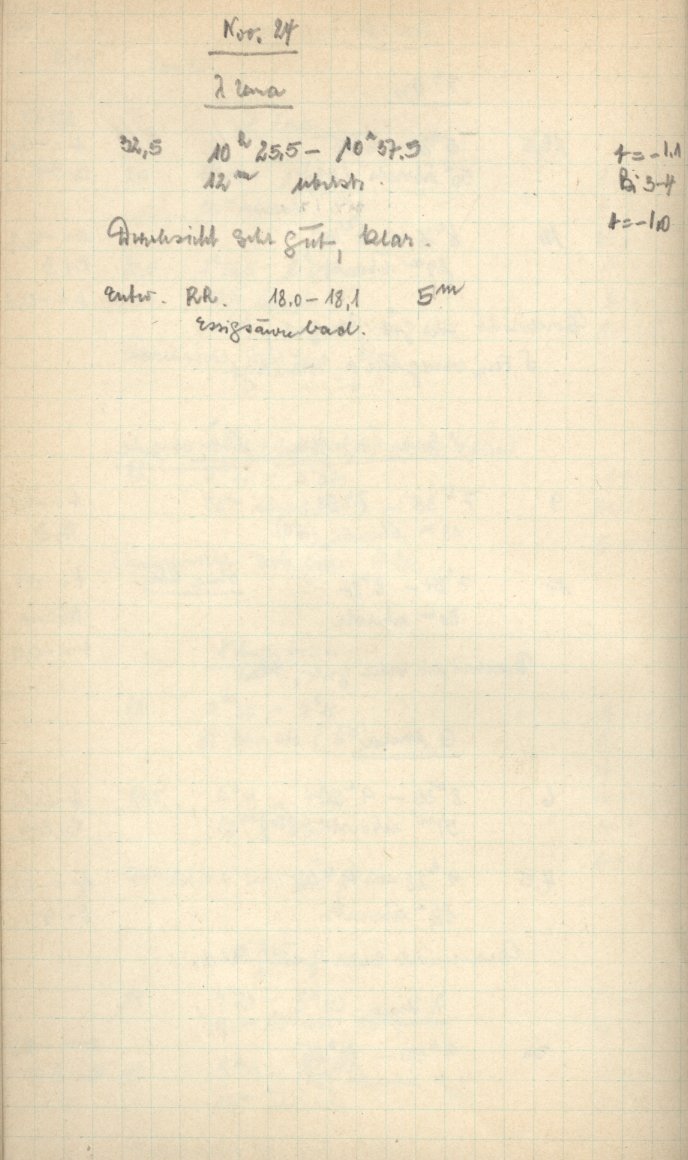 Nov. 24
λ Uma
32,5 10ʰ 25,5 – 10ʰ 37.5 t = -1.1
12ᵐ überstr. Bi 3-4
t = -1,0
Durchsicht sehr gut, klar.
Entw. RR. 18.0 – 18,1 5ᵐ
Essigsäurebad.